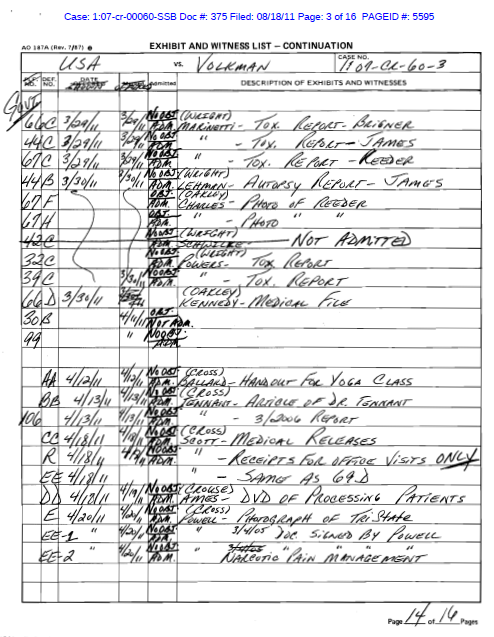 Case: 1:07-cr-00060-SSB Doc #: 375 Filed: 08/18/11 Page: 3 of 16 PAGEID #: 5595
AO 187A (Rev. 7/87) EXHIBIT AND WITNESS LIST – CONTINUATION
USA vs. VOLKMAN CASE NO. 1:07-CR-60-3
NO. DEF. NO. DATE Admitted DESCRIPTION OF EXHIBITS AND WITNESSES
GOVT
66C 3/29/11 3/29/11 NO OBJ. ADM. (WRIGHT) MARINETTI - TOX. REPORT - BRIGNER
44C 3/29/11 3/29/11 NO OBJ. ADM. " - TOX. REPORT - JAMES
67C 3/29/11 3/29/11 NO OBJ. ADM. " - TOX. REPORT - REEDER
44B 3/30/11 3/30/11 NO OBJ. ADM. (WRIGHT) LEHMAN - AUTOPSY REPORT - JAMES
67F OBJ. ADM. (OAKLEY) CHARLES - PHOTO OF REEDER
67H OBJ. ADM. " - PHOTO " "
42C NO OBJ. ADM. (WRIGHT) SCHWILKE - NOT ADMITTED
32C NO OBJ. ADM. (WRIGHT) POWERS - TOX REPORT
39C 3/30/11 NO OBJ. ADM. " - TOX. REPORT
66D 3/30/11 (OAKLEY) KENNEDY - MEDICAL FILE
30B 4/11/11 OBJ. NOT ADM.
99 " NO OBJ. ADM.
AA 4/12/11 4/12/11 NO OBJ. ADM. (CROSS) BALLARD - HANDOUT FOR YOGA CLASS
BB 4/13/11 4/13/11 NO OBJ. ADM. (CROSS) TENNANT - ARTICLE OF DR. TENNANT
106 4/13/11 4/13/11 NO OBJ. ADM. " 3/2006 REPORT
CC 4/18/11 4/18/11 NO OBJ. ADM. (CROSS) SCOTT - MEDICAL RELEASES
R 4/18/11 NO OBJ. ADM. " - RECEIPTS FOR OFFICE VISITS ONLY
EE 4/18/11 " - SAME AS 69.D
DD 4/18/11 4/19/11 NO OBJ. ADM. (CROUSE) AMES - DVD OF PROCESSING PATIENTS
E 4/20/11 4/20/11 NO OBJ. ADM. (CROSS) POWELL - PHOTOGRAPH OF TRISTATE
EE-1 " 4/20/11 NO OBJ. ADM. " 3/4/05 DOC. SIGNED BY POWELL
EE-2 " 4/20/11 NO OBJ. ADM. " NARCOTIC PAIN MANAGEMENT
Page 14 of 16 Pages